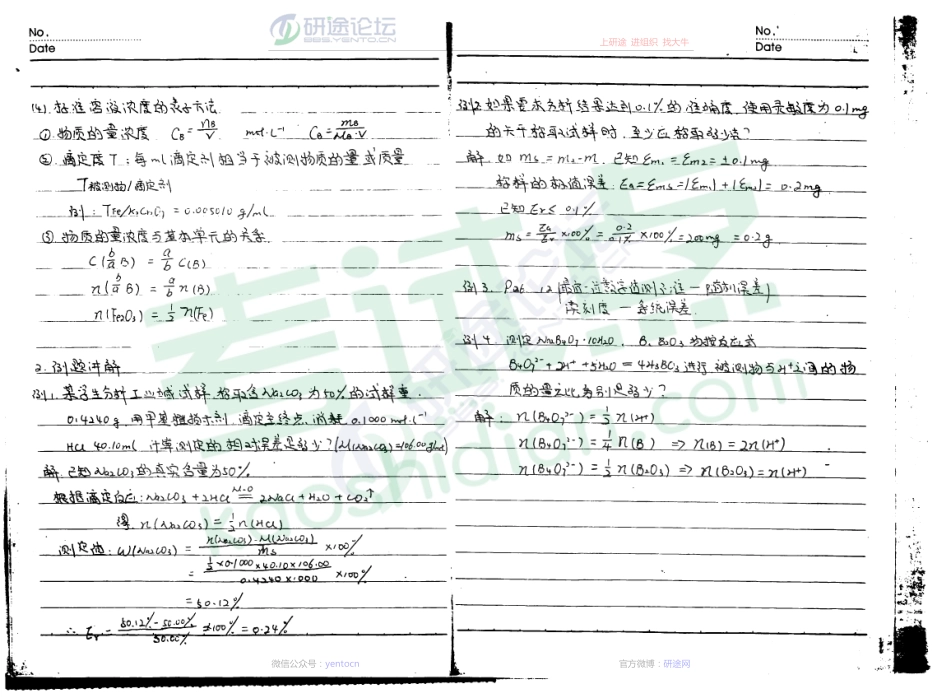 No.
Date
研途论坛
BBS.YENTO.CN
(4). 标准溶液浓度的表示方法
① 物质的量浓度 CB = nB/V mol·L⁻¹ CB = mB/MB·V
② 滴定度 T：每mL滴定剂相当于被测物质的量或质量
T被测物/滴定剂
例：TFe/K₂Cr₂O₇ = 0.005010 g/mL
③ 物质的量浓度与基本单元的关系
C(b/a B) = a/b C(B)
n(b/a B) = a/b n(B)
n(Fe₂O₃) = 1/2 n(Fe)
2. 例题讲解
例1. 某学生分析工业碱试样，称取含Na₂CO₃为50%的试样重
0.4240g，用甲基橙指示剂，滴定至终点，消耗 0.1000 mol·L⁻¹
HCl 40.10mL 计算测定的相对误差是多少？[M(Na₂CO₃)=106.00g/mol]
解：已知Na₂CO₃的真实含量为50%.
根据滴定反应：Na₂CO₃ + 2HCl =M·O= 2NaCl + H₂O + CO₂↑
得 n(Na₂CO₃) = 1/2 n(HCl)
测定值：W(Na₂CO₃) = n(Na₂CO₃)·M(Na₂CO₃)/ms ×100%
= 1/2×0.1000×40.10×106.00/0.4240×1000 ×100%
= 50.12%
∴ Er = 50.12%-50.00%/50.00% ×100% = 0.24%
微信公众号：yentocn
上研途 进组织 找大牛
No.
Date
例2. 如果要求分析结果达到0.1%的准确度，使用灵敏度为0.1mg
的天平称取试样时，至少应称取多少克？
解：如 ms = m₂-m. 已知 Em₁ = Em₂ = ±0.1mg
称样的极值误差：Ea=Ems=|Em₁|+|Em₂|= 0.2mg
已知 Er≤ 0.1%
ms = Ea/Er ×100% = 0.2/0.1% ×100% = 200mg = 0.2g
例3. P26 12
读刻度 — 系统误差
例4. 测定Na₂B₄O₇·10H₂O、B、B₂O₃ 均按反应式
B₄O₇²⁻ + 2H⁺ + 5H₂O = 4H₃BO₃ 进行 被测物与H⁺之间的物
质的量之比各别是多少？
解：n(B₄O₇²⁻) = 1/2 n(H⁺)
n(B₄O₇²⁻) = 1/4 n(B) ⇒ n(B) = 2n(H⁺)
n(B₄O₇²⁻) = 1/2 n(B₂O₃) ⇒ n(B₂O₃) = n(H⁺)
官方微博：研途网
考试点
kaoshidian.com